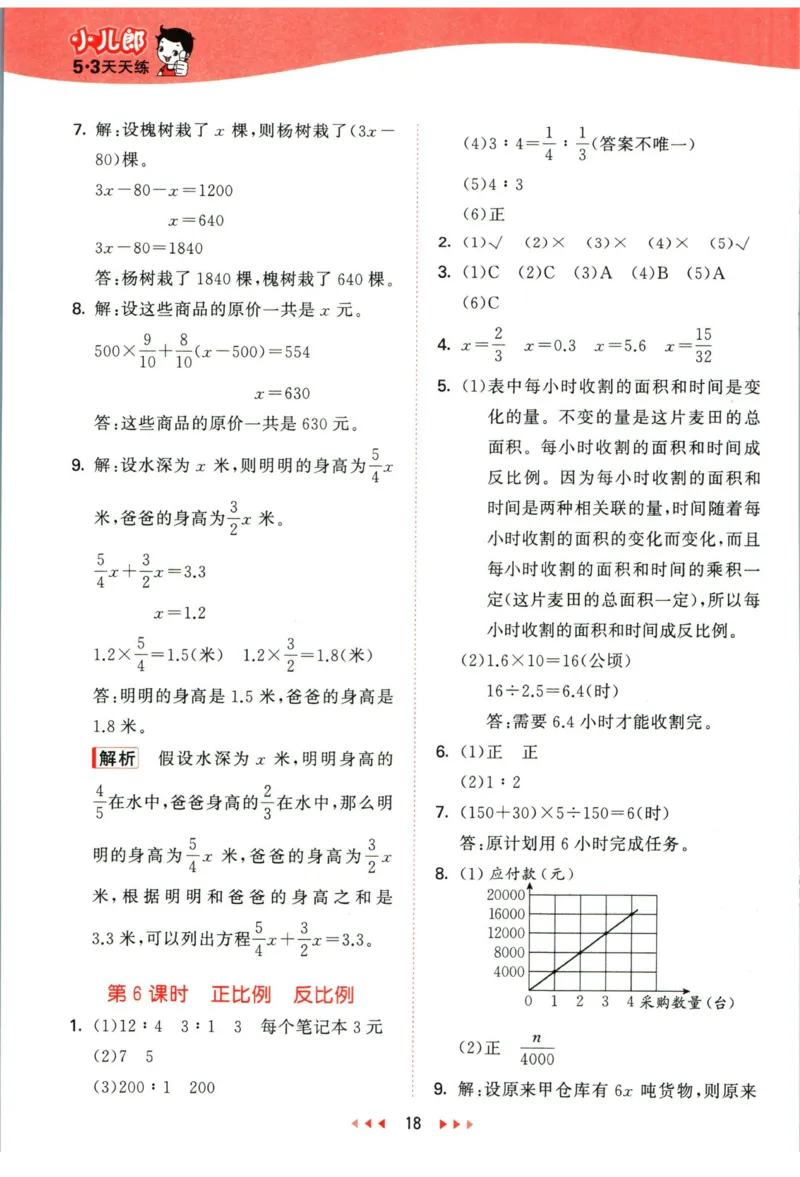 小儿郎
5·3天天练
7. 解:设槐树栽了 x 棵,则杨树栽了(3x-
80)棵。
3x-80-x=1200
x=640
3x-80=1840
答:杨树栽了 1840 棵,槐树栽了 640 棵。
8. 解:设这些商品的原价一共是 x 元。
500×9/10+8/10(x-500)=554
x=630
答:这些商品的原价一共是 630 元。
9. 解:设水深为 x 米,则明明的身高为5/4x
米,爸爸的身高为3/2x 米。
5/4x+3/2x=3.3
x=1.2
1.2×5/4=1.5(米) 1.2×3/2=1.8(米)
答:明明的身高是 1.5 米,爸爸的身高是
1.8 米。
解析 假设水深为 x 米,明明身高的
4/5在水中,爸爸身高的2/3在水中,那么明
明的身高为5/4x 米,爸爸的身高为3/2x
米,根据明明和爸爸的身高之和是
3.3 米,可以列出方程5/4x+3/2x=3.3。
第 6 课时 正比例 反比例
1. (1)12∶4 3∶1 3 每个笔记本 3 元
(2)7 5
(3)200∶1 200
(4)3∶4=1/4∶1/3(答案不唯一)
(5)4∶3
(6)正
2. (1)√ (2)× (3)× (4)× (5)√
3. (1)C (2)C (3)A (4)B (5)A
(6)C
4. x=2/3 x=0.3 x=5.6 x=15/32
5. (1)表中每小时收割的面积和时间是变
化的量。不变的量是这片麦田的总
面积。每小时收割的面积和时间成
反比例。因为每小时收割的面积和
时间是两种相关联的量,时间随着每
小时收割的面积的变化而变化,而且
每小时收割的面积和时间的乘积一
定(这片麦田的总面积一定),所以每
小时收割的面积和时间成反比例。
(2)1.6×10=16(公顷)
16÷2.5=6.4(时)
答:需要 6.4 小时才能收割完。
6. (1)正 正
(2)1∶2
7. (150+30)×5÷150=6(时)
答:原计划用 6 小时完成任务。
8. (1) 应付款(元)
20000
16000
12000
8000
4000
0 1 2 3 4 采购数量(台)
(2)正 n/4000
9. 解:设原来甲仓库有 6x 吨货物,则原来
18